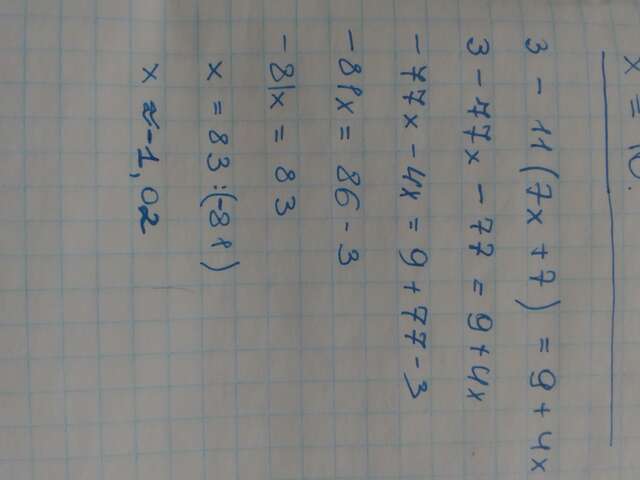 x = 10.
3 - 11(7x + 7) = 9 + 4x
3 - 77x - 77 = 9 + 4x
-77x - 4x = 9 + 77 - 3
-81x = 86 - 3
-81x = 83
x = 83 : (-81)
x ≈ -1,02